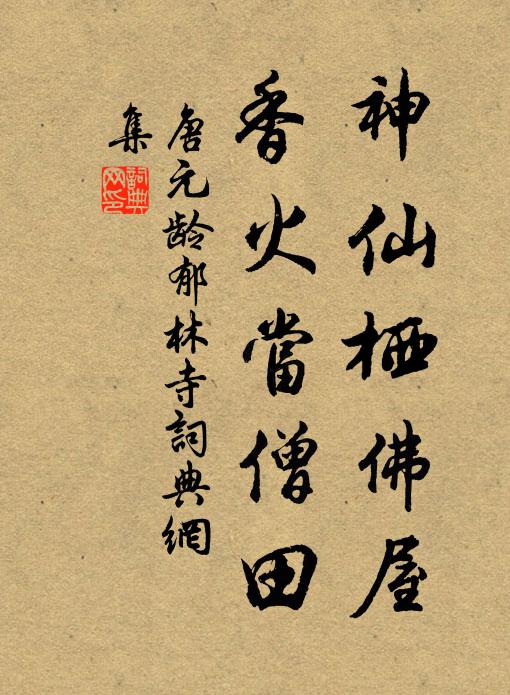 神仙栖佛屋
香火當僧田
唐元龄郁林寺詞典網
集
詞典
网印